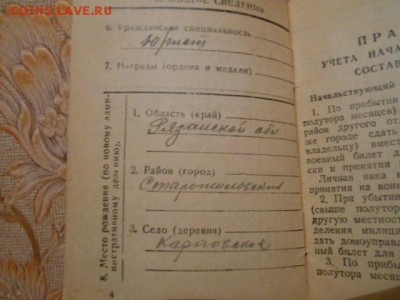 COINS.LAVE.RU
СВЕДЕНИЯ
6. Гражданская специальность
Юрист
7. Награды (ордена и медали)
8. Место рождения (по новому административному делению).
1. Область (край)
Рязанской обл
2. Район (город)
Старожиловский
3. Село (деревня)
4
ПРА
УЧЕТА НАЧА
СОСТАВ
Начальствующий
1. По прибытии
полутора месяцев)
район другого от
же городе сдать
владельцу) вмест
военный билет дл
ски и принятия
Личная явка в
принятия на воин
2. При убытии
(свыше полутор
другую местност
деления милици
дать домоуправл
3. По прибы
полутора месяц